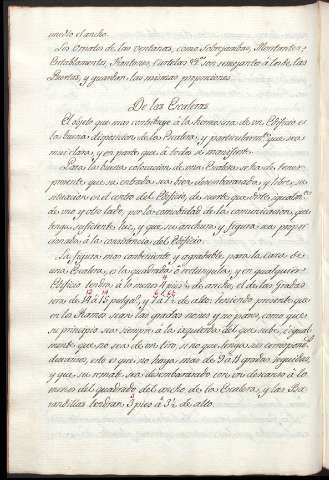 medio el ancho.
Los Ornatos de las ventanas, como Sobrejambas, Montantes,
Entablamentos, Frontones, Cartelas &.ª son semejantes à los de las
Puertas, y guardan las mismas proporciones.
De las Escaleras
El objeto que mas contribuye à la hermosura de un Edificio es
la buena disposicion de la Escalera, y particularm.te que sea
mui clara, y en parte que à todos se manifieste.
Para la buena colocacion de una Escalera se ha de tener
presente que su entrada sea bien desembarazada, y libre, su
situacion en el centro del Edificio, de suerte que diste igualm.te
de uno y otro lado, por la comodidad de la comunicacion, que
tenga suficiente luz, y que su anchura, y figura sea propor-
cionada à la consistencia del Edificio.
La figura mas conveniente, y agradable para la Caxa de
una Escalera, es la quadrada ò rectangula, y en qualquiera
Edificio tendra à lo menos 4 pies ½ de ancho, el de las Gradas
sera de 14 à 15 pulgad.s y 7 à 7 ½ de alto: teniendo presente que
en los Ramos sean las gradas nones y no pares, como que
su principio sea siempre à la izquierda del que sube, è igual-
mente que no sea de un tiro, si no que tenga sus correspond.s
descansos, esto es que no haya mas de 9 à 11 gradas seguidas,
y que su remate sea desembarazado con un descanso à lo
menos del quadrado del ancho de la Escalera, y las Ba-
randillas tendran 3 pies à 3 ½ de alto.